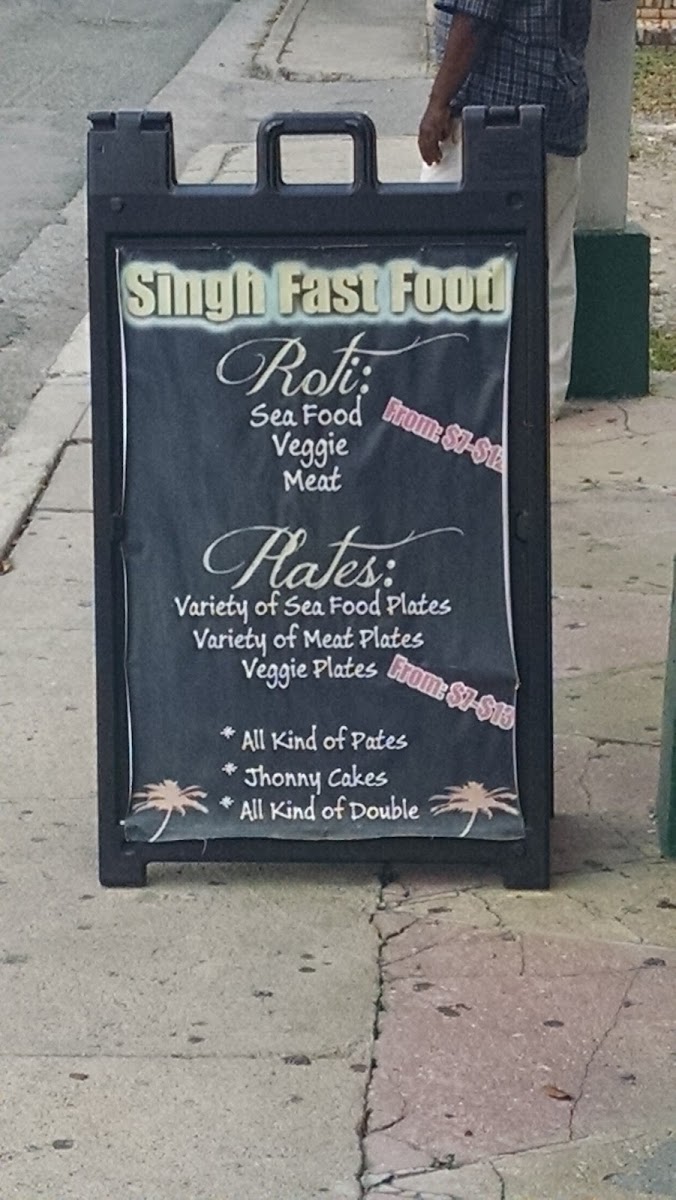 Singh Fast Food
Roti:
Sea Food
From: $7-$12
Veggie
Meat
Plates:
Variety of Sea Food Plates
Variety of Meat Plates
Veggie Plates
From: $7-$13
* All Kind of Pates
* Jhonny Cakes
* All Kind of Double